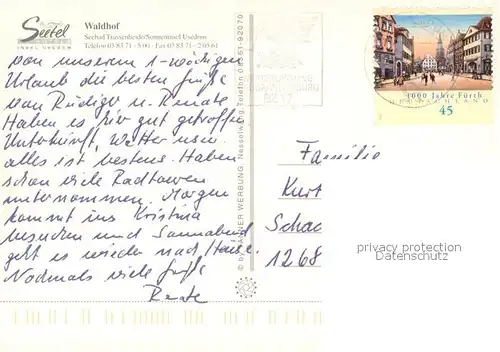 Seetel
INSEL USEDOM
Waldhof
Seebad Trassenheide/Sonneninsel Usedom
Telefon 03 83 71 - 5 00 · Fax 03 83 71 - 2 05 61
von unserem 1-wöchigen
Urlaub die besten Grüße
von Rüdiger u. Renate
Haben es hier gut getroffen
Unterkunft, Wetter usw.
alles ist bestens. Haben
schon viele Radtouren
unternommen. Morgen
kommt uns Kristina
besuchen und Sonnabend
geht es wieder nach Hause.
Nochmals viele Grüße
Renate
WERBUNG Nesselwang, Telefon 08361-92070
1000 Jahre Fürth
DEUTSCHLAND
45
Familie
Kurt
Schac
1268
privacy protection
Datenschutz